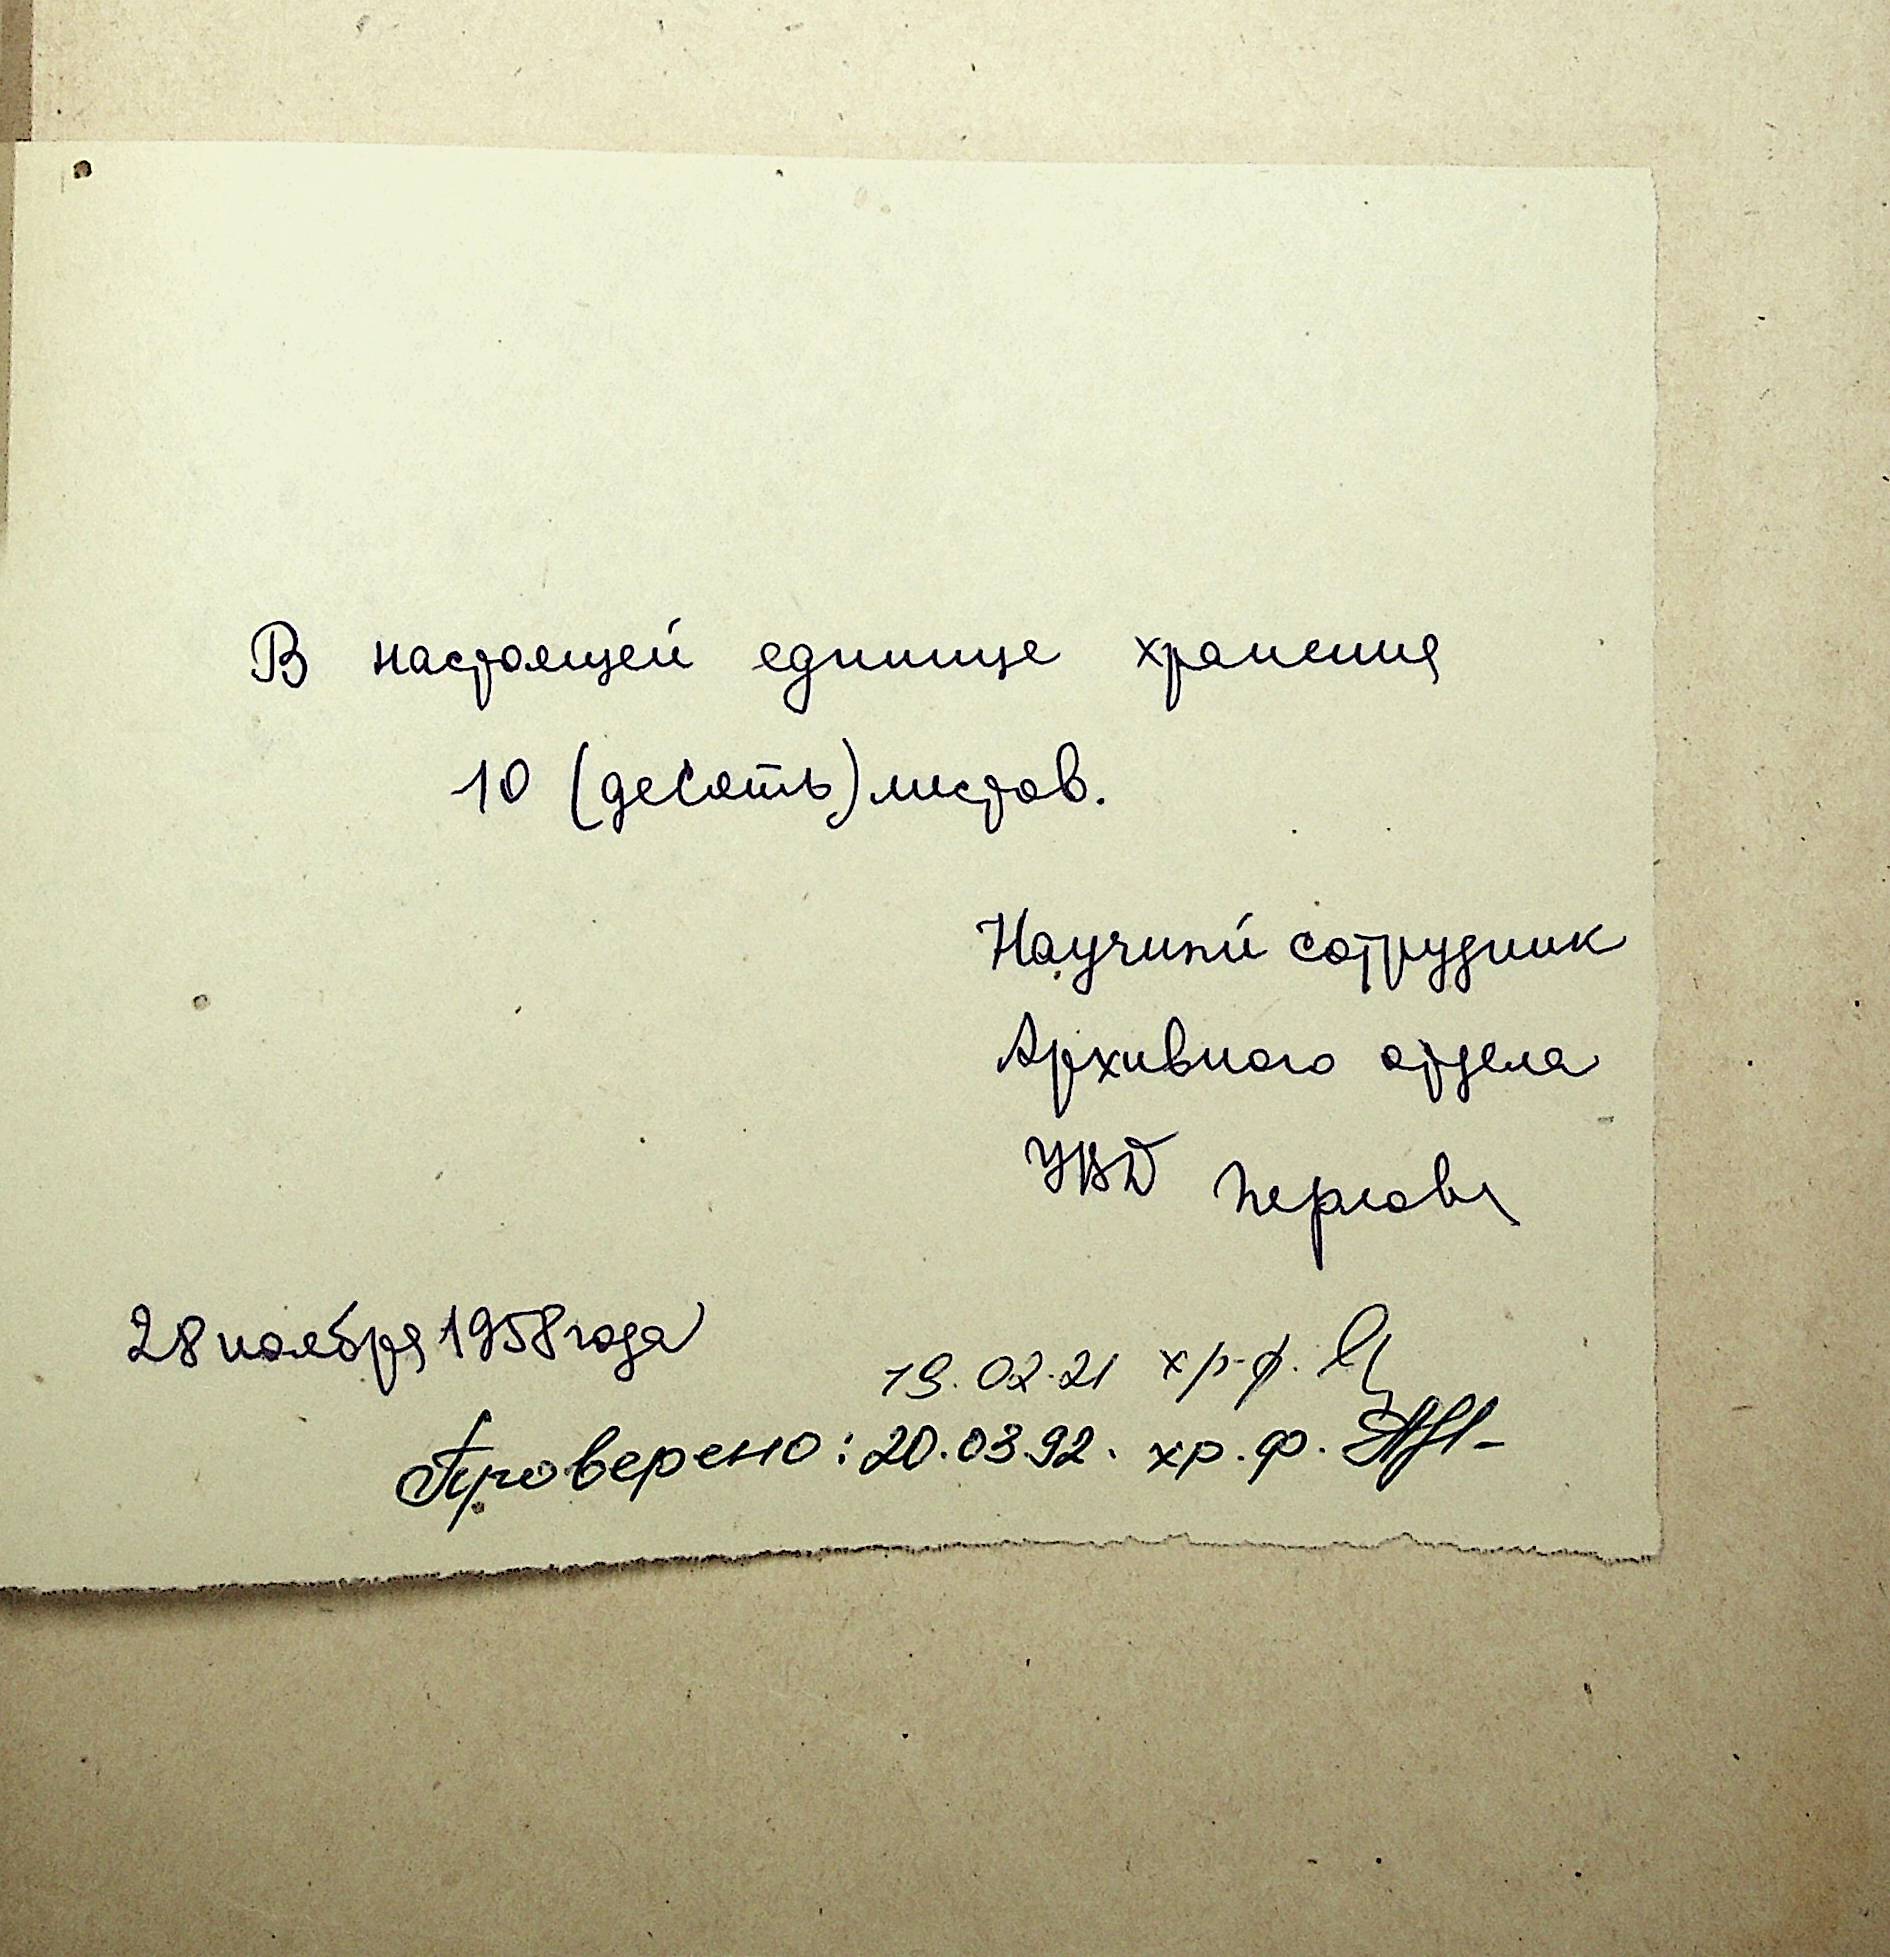 В настоящей единице хранения
10 (десять) листов.
Научный сотрудник
Архивного отдела
УВД
28 ноября 1958 года
19.02.21 хр.ф.
Проверено: 20.03.92. хр.ф.